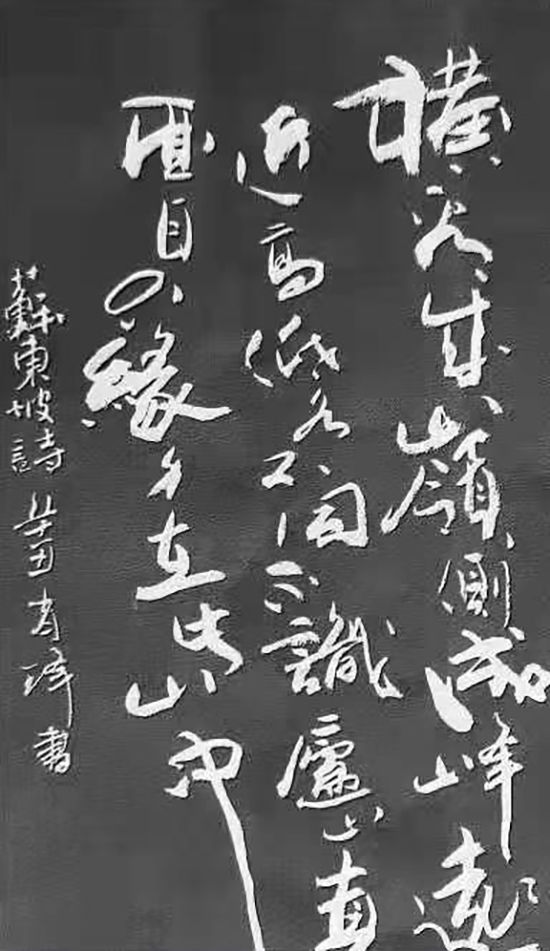 橫看成嶺側成峰遠
近高低各不同不識廬山真
面目只緣身在此山中
蘇東坡詩 辛丑 書